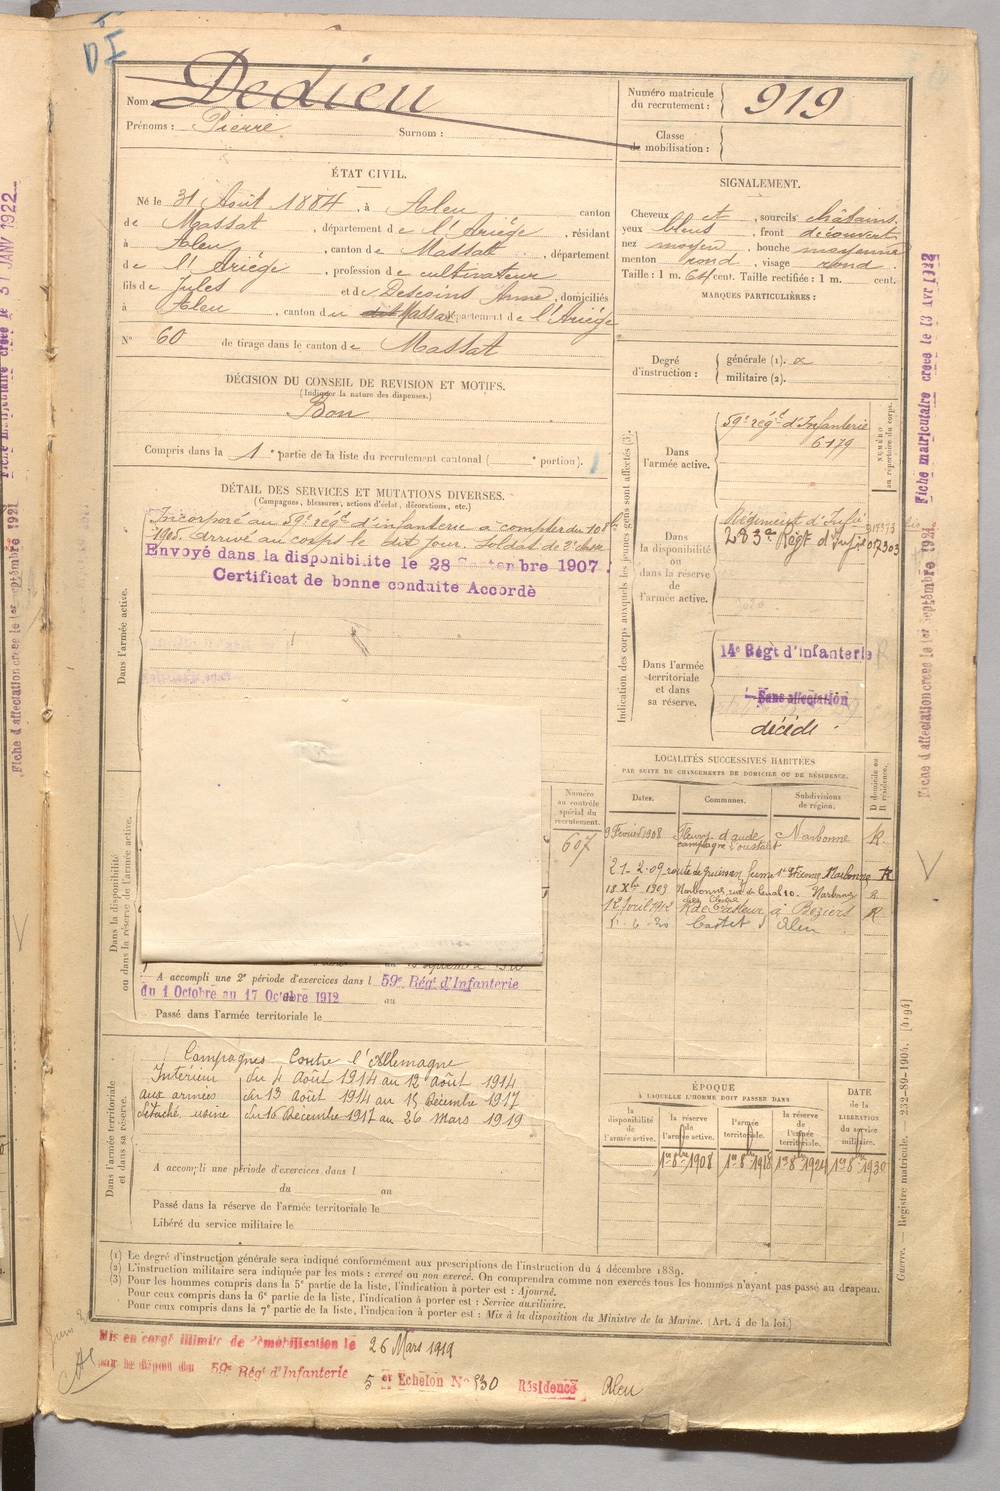 DF
Nom Dedieu
Prénoms : Pierre Surnom :
Numéro matricule du recrutement : 919
Classe de mobilisation :
ÉTAT CIVIL.
Né le 31 Août 1884, à Aleu canton
de Massat, département de l'Ariège, résidant
à Aleu, canton de Massat, département
de l'Ariège, profession de cultivateur
fils de Jules et de Descoins Anne, domiciliés
à Aleu, canton du Massat département de l'Ariège
N° 60 de tirage dans le canton de Massat
SIGNALEMENT.
Cheveux et, sourcils châtains.
yeux bleus, front découvert,
nez moyen, bouche moyenne
menton rond, visage rond.
Taille : 1 m. 64 cent. Taille rectifiée : 1 m. cent.
MARQUES PARTICULIÈRES :
Degré d'instruction :
générale (1).
militaire (2).
DÉCISION DU CONSEIL DE REVISION ET MOTIFS.
(Indiquer la nature des dispenses.)
Bon
Compris dans la 1e partie de la liste du recrutement cantonal ( e portion).
DÉTAIL DES SERVICES ET MUTATIONS DIVERSES.
(Campagnes, blessures, actions d'éclat, décorations, etc.)
Incorporé au 59e rég.t d'infanterie à compter du 10 8bre
1905. Arrivé au corps le dit jour. Soldat de 2e classe
Envoyé dans la disponibilite le 28 Septembre 1907
Certificat de bonne conduite Accordé
Dans l'armée active.
Indication des corps auxquels les jeunes gens sont affectés (3).
NUMÉRO au répertoire du corps.
Dans l'armée active.
59e rég.t d'Infanterie
6179
Dans la disponibilité ou dans la réserve de l'armée active.
Régiment d'Infie
283e Régt d'Infie 07303
Dans l'armée territoriale et dans sa réserve.
14e Régt d'infanterie
Sans affectation
décédé
Dans la disponibilité ou dans la réserve de l'armée active.
Numéro au contrôle spécial du recrutement.
607
A accompli une 2e période d'exercices dans l 59e Régt d'Infanterie
du 1 Octobre au 17 Octobre 1912 au
Passé dans l'armée territoriale le
LOCALITÉS SUCCESSIVES HABITÉES
PAR SUITE DE CHANGEMENTS DE DOMICILE OU DE RÉSIDENCE.
Dates. Communes. Subdivisions de région. D domicile ou R résidence.
9 Février 1908 Fleury d'aude Narbonne R.
campagne
21-2-09 route de gruissan, ferme St Etienne, Narbonne R
18 Xbre 1909 Narbonne, rue du Canal 10. Narbonne R
12 Avril 1912 à Béziers R
Castet d'Aleu
Dans l'armée territoriale et dans sa réserve.
Campagnes Contre l'Allemagne
Intérieur du 4 Août 1914 au 12 Août 1914
aux armées du 13 Août 1914 au 15 Décembre 1917
détaché usine du 16 Décembre 1917 au 26 Mars 1919
A accompli une période d'exercices dans l
du au
Passé dans la réserve de l'armée territoriale le
Libéré du service militaire le
ÉPOQUE
À LAQUELLE L'HOMME DOIT PASSER DANS
la disponibilité de l'armée active. la réserve de l'armée active. l'armée territoriale. la réserve de l'armée territoriale. DATE de la LIBÉRATION du service militaire.
1er 8bre 1908 1er 8bre 1918 1er 8bre 1924 1er 8bre 1930
(1) Le degré d'instruction générale sera indiqué conformément aux prescriptions de l'instruction du 4 décembre 1889.
(2) L'instruction militaire sera indiquée par les mots : exercé ou non exercé. On comprendra comme non exercés tous les hommes n'ayant pas passé au drapeau.
(3) Pour les hommes compris dans la 5e partie de la liste, l'indication à porter est : Ajourné.
Pour ceux compris dans la 6e partie de la liste, l'indication à porter est : Service auxiliaire.
Pour ceux compris dans la 7e partie de la liste, l'indication à porter est : Mis à la disposition du Ministre de la Marine. (Art. 4 de la loi.)
Mis en congé illimité de démobilisation le 26 Mars 1919
par le dépôt du 59e Régt d'Infanterie
5 er Echelon N° 530 Résidence Aleu
Guerre. — Registre matricule. — 232-89-1904. [4194]
Fiche d'affectation créée le 1er Septembre 1921
Fiche matriculaire créée le 13 Avr 1922
Fiche d'affectation créée le 1er Septembre 1921
Fiche matriculaire créée le 31 JANV 1922